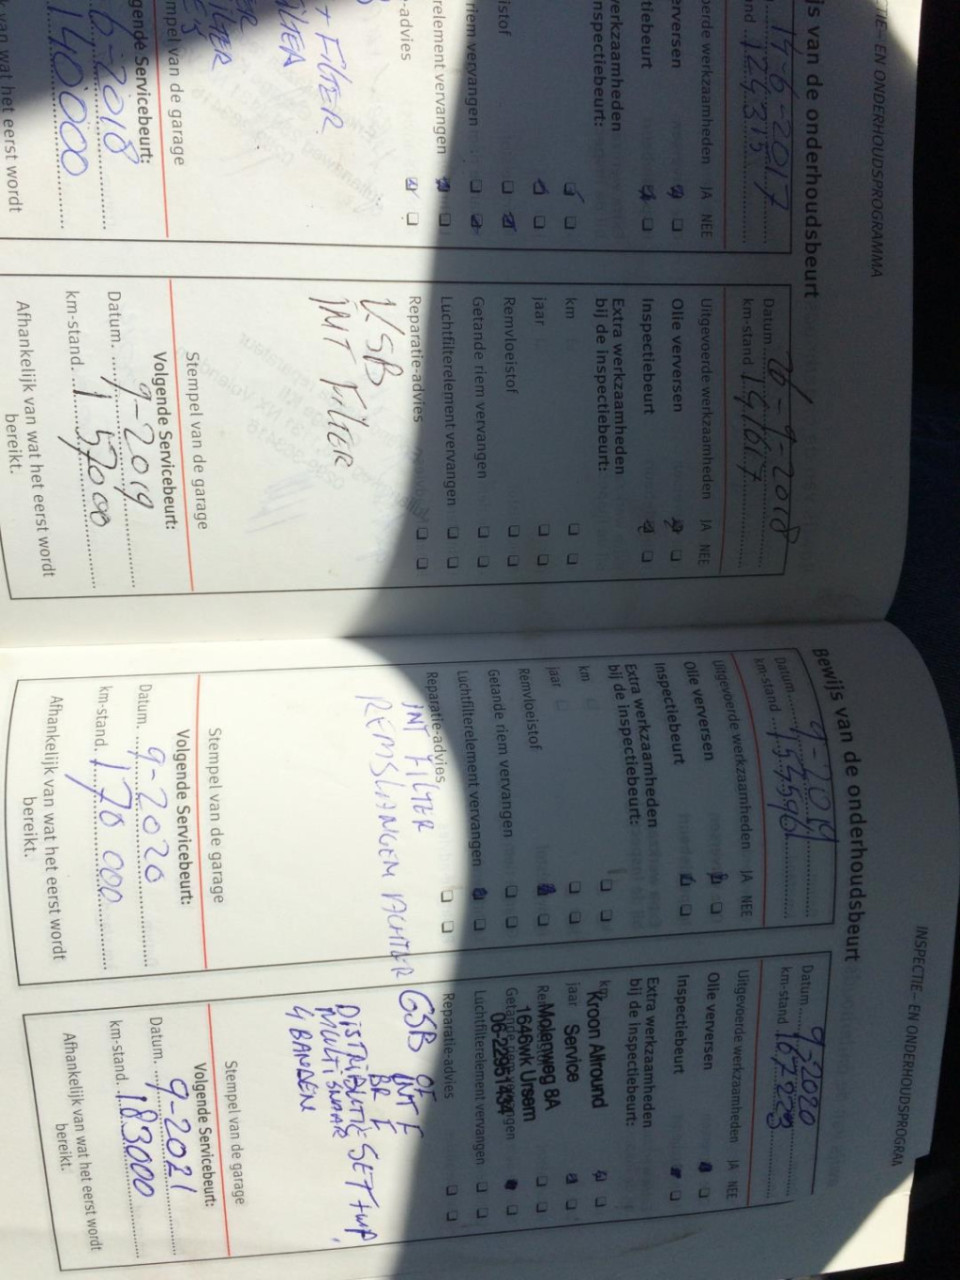 INSPECTIE– EN ONDERHOUDSPROGRAMMA
js van de onderhoudsbeurt
14-6-2017
and 124315
erde werkzaamheden JA NEE
erversen
tiebeurt
erkzaamheden
nspectiebeurt:
lstof
riem vervangen
relement vervangen
-advies
+ FilTER
mpel van de garage
gende Servicebeurt:
6-2018
140000
van wat het eerst wordt
Datum
-9-2018
km-stand
Uitgevoerde werkzaamheden JA NEE
Olie verversen
Inspectiebeurt
Extra werkzaamheden
bij de inspectiebeurt:
km
jaar
Remvloeistof
Getande riem vervangen
Luchtfilterelement vervangen
Reparatie-advies
KSB
INT FilTER
Stempel van de garage
Volgende Servicebeurt:
Datum. 9-2019
km-stand. 157000
Afhankelijk van wat het eerst wordt
bereikt.
Bewijs van de onderhoudsbeurt
Datum. 9-2019
km-stand
Uitgevoerde werkzaamheden JA NEE
Olie verversen
Inspectiebeurt
Extra werkzaamheden
bij de inspectiebeurt:
km
jaar
Remvloeistof
Getande riem vervangen
Luchtfilterelement vervangen
Reparatie-advies
INT FILTER
REMSLANGEN ACHTER
Stempel van de garage
Volgende Servicebeurt:
Datum. 9-2020
km-stand. 170 000
Afhankelijk van wat het eerst wordt
bereikt.
INSPECTIE– EN ONDERHOUDSPROGRAA
Datum. 9-2020
km-stand 167223
Uitgevoerde werkzaamheden JA NEE
Olie verversen
Inspectiebeurt
Extra werkzaamheden
bij de inspectiebeurt:
km Kroon Allround
jaar Service
Molenweg 8A
1646wk Ursem
06-22951434
Luchtfilterelement vervangen
Reparatie-advies
GSB OF
INT F
BR F
DISTRIBUTIE SET + WP
MULTISNAAR
4 BANDEN
Stempel van de garage
Volgende Servicebeurt:
Datum. 9-2021
km-stand. 183000
Afhankelijk van wat het eerst wordt
bereikt.